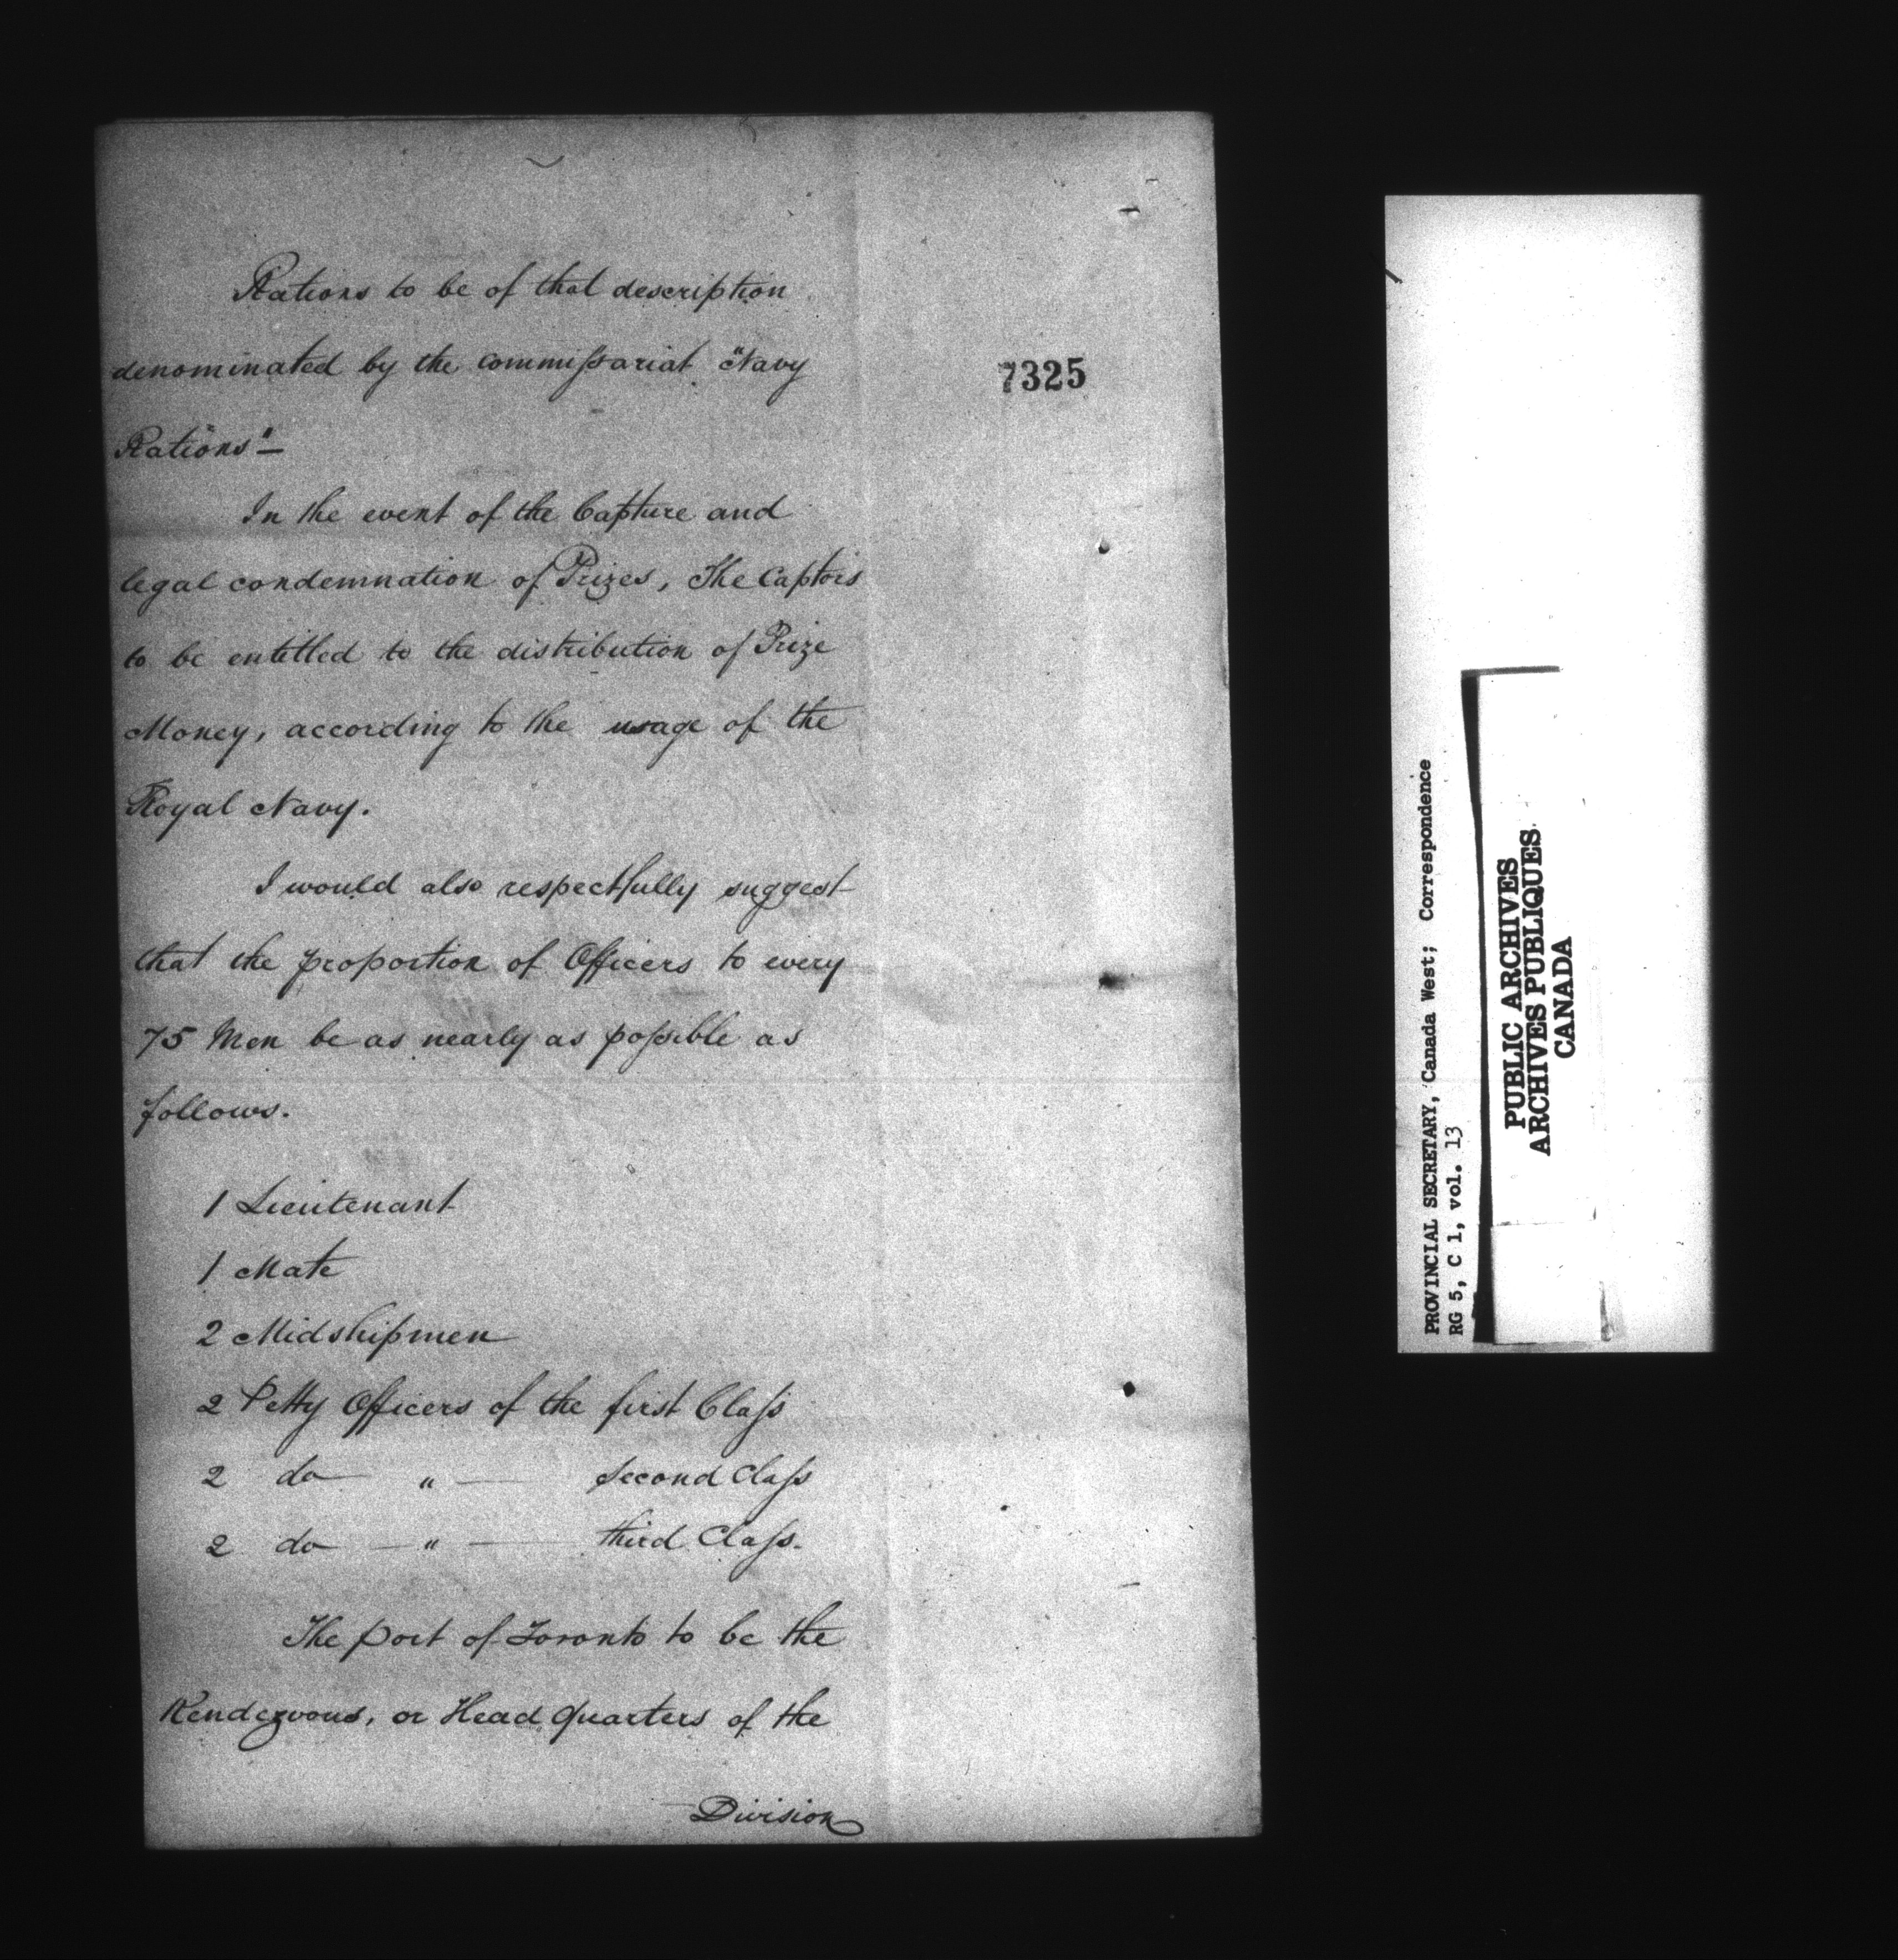 Rations to be of that description
denominated by the commiſsariat "Navy
Rations"—
In the event of the Capture and
legal condemnation of Prizes, The Captors
to be entitled to the distribution of Prize
Money, according to the usage of the
Royal Navy.
I would also respectfully suggest
that the proportion of Officers to every
75 Men be as nearly as poſsible as
follows.
1 Lieutenant
1 Mate
2 Midshipmen
2 Petty Officers of the first Claſs
2 do — " — second Claſs
2 do — " — third Claſs.
The port of Toronto to be the
Rendezvous, or Head Quarters of the
Division
7325
PROVINCIAL SECRETARY, Canada West; Correspondence
RG 5, C 1, vol. 13
PUBLIC ARCHIVES
ARCHIVES PUBLIQUES
CANADA